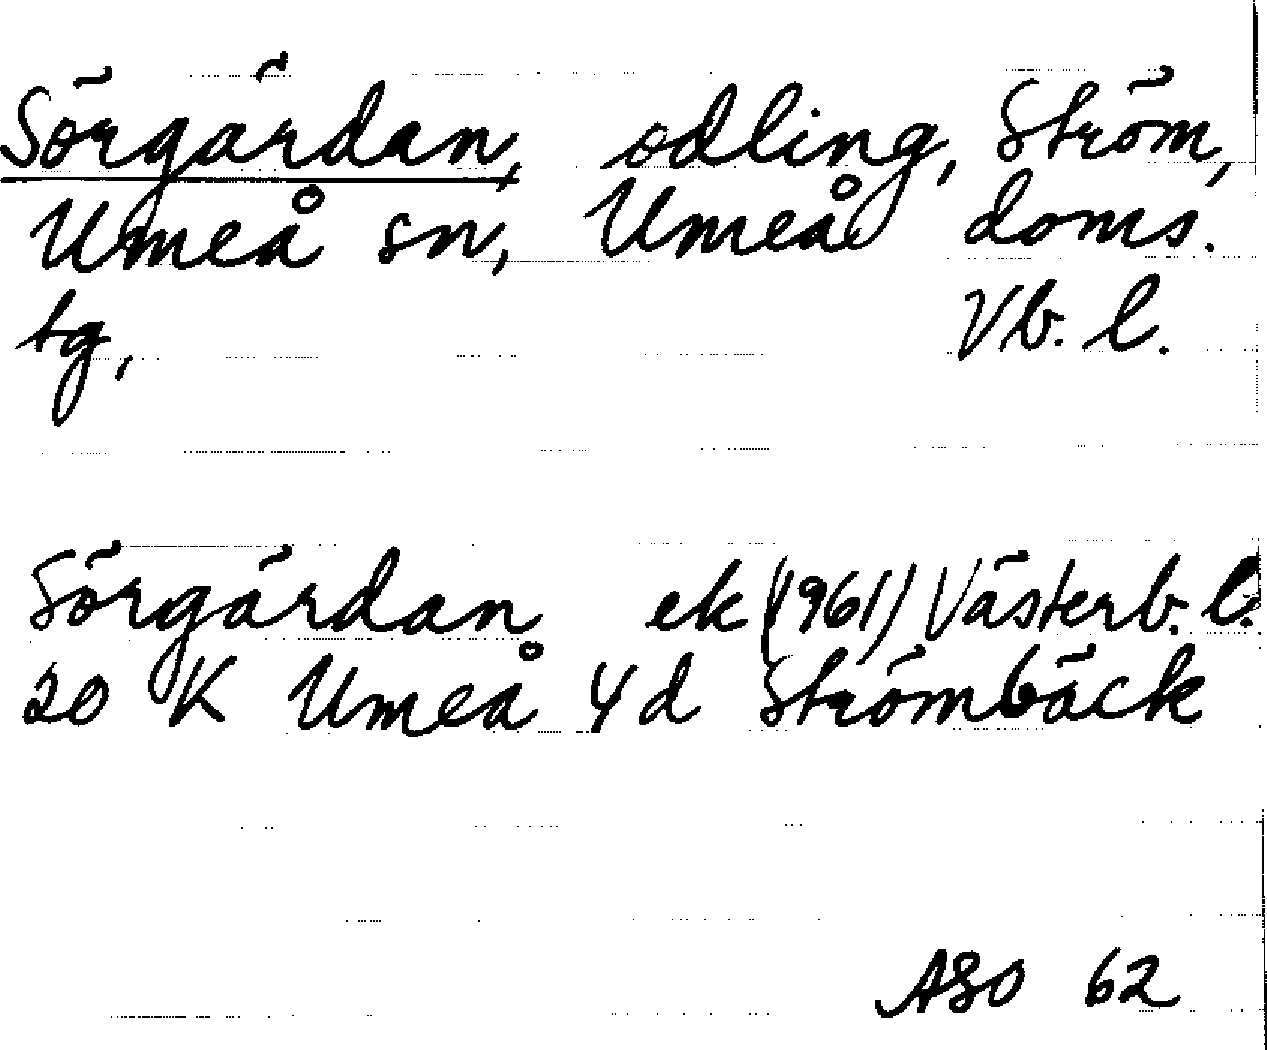 Sörgärdan, odling, Ström,
Umeå sn, Umeå doms.
tg, Vb. l.
Sörgärdan ek (1961) Västerb. l.
20 K Umeå 4d Strömbäck
ASO 62